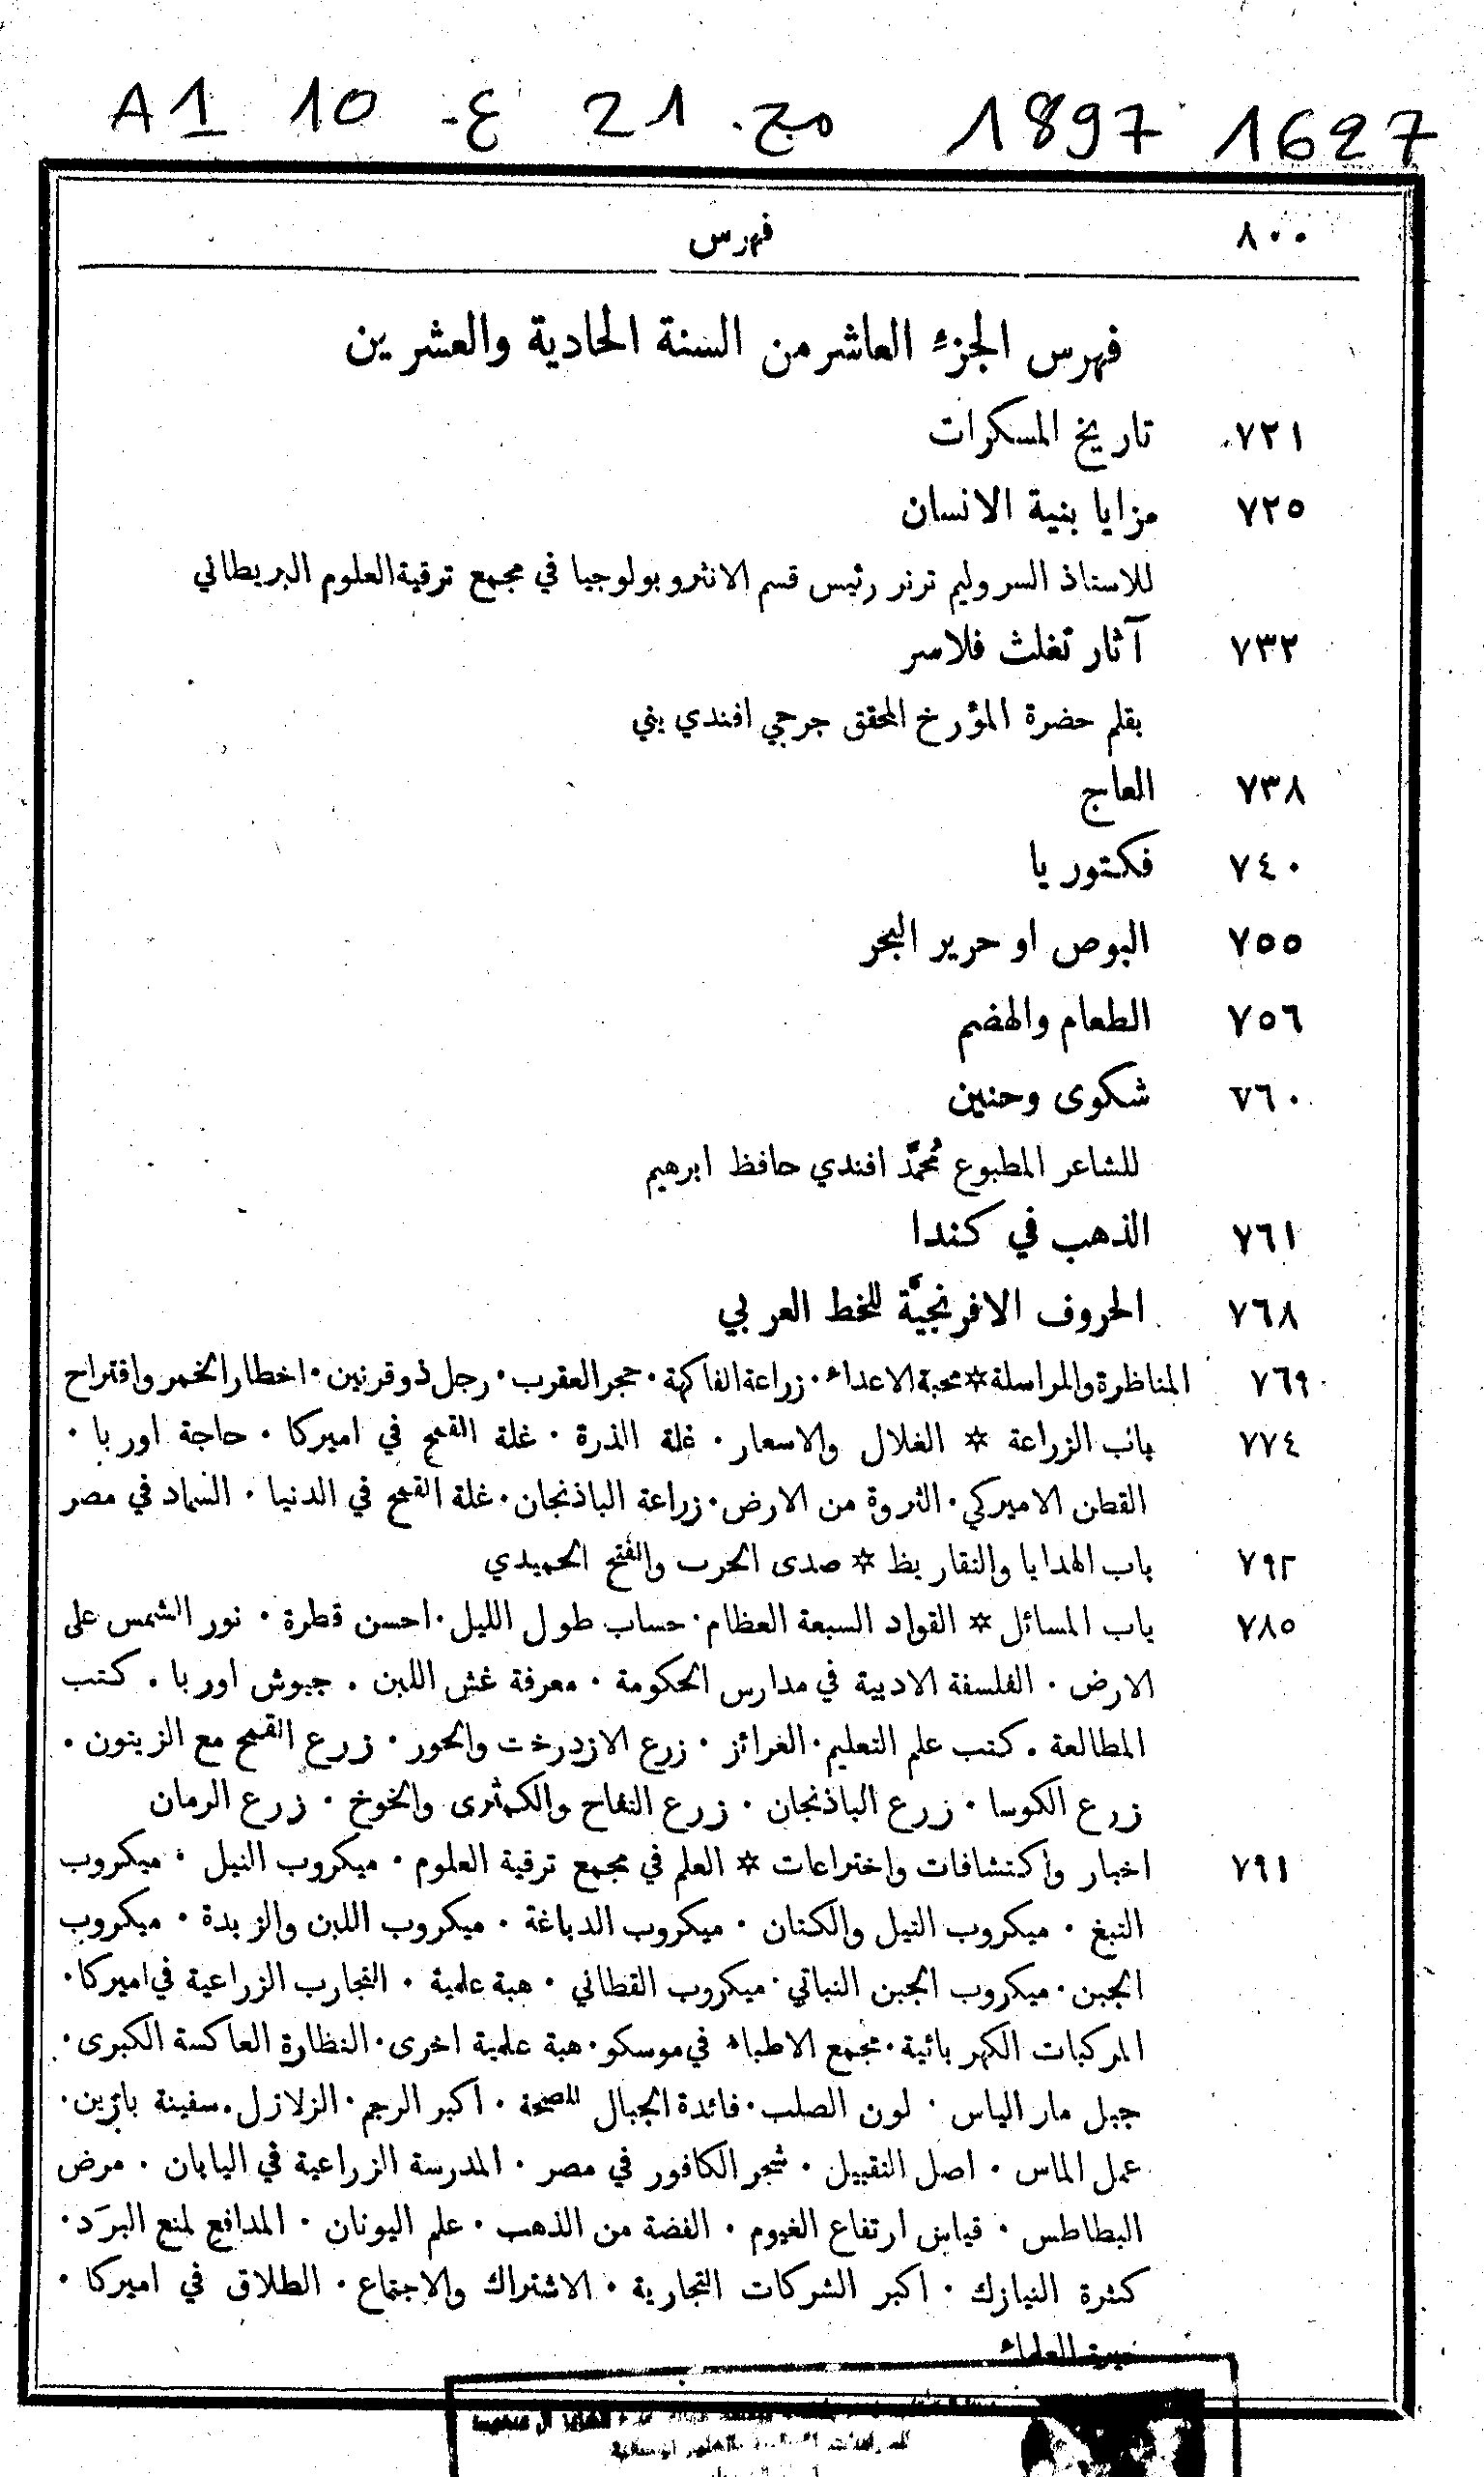 A1 10 ع- 21 مج. 1897 1627
٨٠٠ فهرس
فهرس الجزء العاشر من السنة الحادية والعشرين
٧٢١ تاريخ المسكرات
٧٢٥ مزايا بنية الانسان
للاستاذ السر وليم ترنر رئيس قسم الانثروبولوجيا في مجمع ترقية العلوم البريطاني
٧٣٢ آثار تغلث فلاسر
بقلم حضرة المؤرخ المحقق جرجي افندي يني
٧٣٨ العاج
٧٤٠ فكتوريا
٧٥٥ البوص او حرير البحر
٧٥٦ الطعام والهضم
٧٦٠ شكوى وحنين
للشاعر المطبوع مُحمَّد افندي حافظ ابرهيم
٧٦١ الذهب في كندا
٧٦٨ الحروف الافرنجيَّة للخط العربي
٧٦٩ المناظرة والمراسلة * محبة الاعداء ٠ زراعة الفاكهة ٠ حجر العقرب ٠ رجل ذو قرنين ٠ اخطار الخمر واقتراح
٧٧٤ باب الزراعة * الغلال والاسعار ٠ غلة الذرة ٠ غلة القمح في اميركا ٠ حاجة اوربا ٠
القطن الاميركي ٠ الثروة من الارض ٠ زراعة الباذنجان ٠ غلة القمح في الدنيا ٠ السماد في مصر
٧٩٢ باب الهدايا والتقاريظ * صدى الحرب والفتح الحميدي
٧٨٥ باب المسائل * القواد السبعة العظام ٠ حساب طول الليل ٠ احسن قطرة ٠ نور الشمس على
الارض ٠ الفلسفة الادبية في مدارس الحكومة ٠ معرفة غش اللبن ٠ جيوش اوربا ٠ كتب
المطالعة ٠ كتب علم التعليم ٠ الغرائز ٠ زرع الازدرخت والحور ٠ زرع القمح مع الزيتون ٠
زرع الكوسا ٠ زرع الباذنجان ٠ زرع التفاح والكمثرى والخوخ ٠ زرع الرمان
٧٩١ اخبار واكتشافات واختراعات * العلم في مجمع ترقية العلوم ٠ ميكروب النيل ٠ ميكروب
التبغ ٠ ميكروب التيل والكتان ٠ ميكروب الدباغة ٠ ميكروب اللبن والزبدة ٠ ميكروب
الجبن ٠ ميكروب الجبن النباتي ٠ ميكروب القطاني ٠ هبة علمية ٠ التجارب الزراعية في اميركا ٠
المركبات الكهربائية ٠ مجمع الاطباء في موسكو ٠ هبة علمية اخرى ٠ النظارة العاكسة الكبرى ٠
جبل مار الياس ٠ لون الصلب ٠ فائدة الجبال للصحة ٠ اكبر الرجم ٠ الزلازل ٠ سفينة بازين ٠
عمل الماس ٠ اصل التقبيل ٠ شجر الكافور في مصر ٠ المدرسة الزراعية في اليابان ٠ مرض
البطاطس ٠ قياس ارتفاع الغيوم ٠ الفضة من الذهب ٠ علم اليونان ٠ المدافع لمنع البرَد ٠
كثرة النيازك ٠ اكبر الشركات التجارية ٠ الاشتراك والاجتماع ٠ الطلاق في اميركا ٠
العلماء